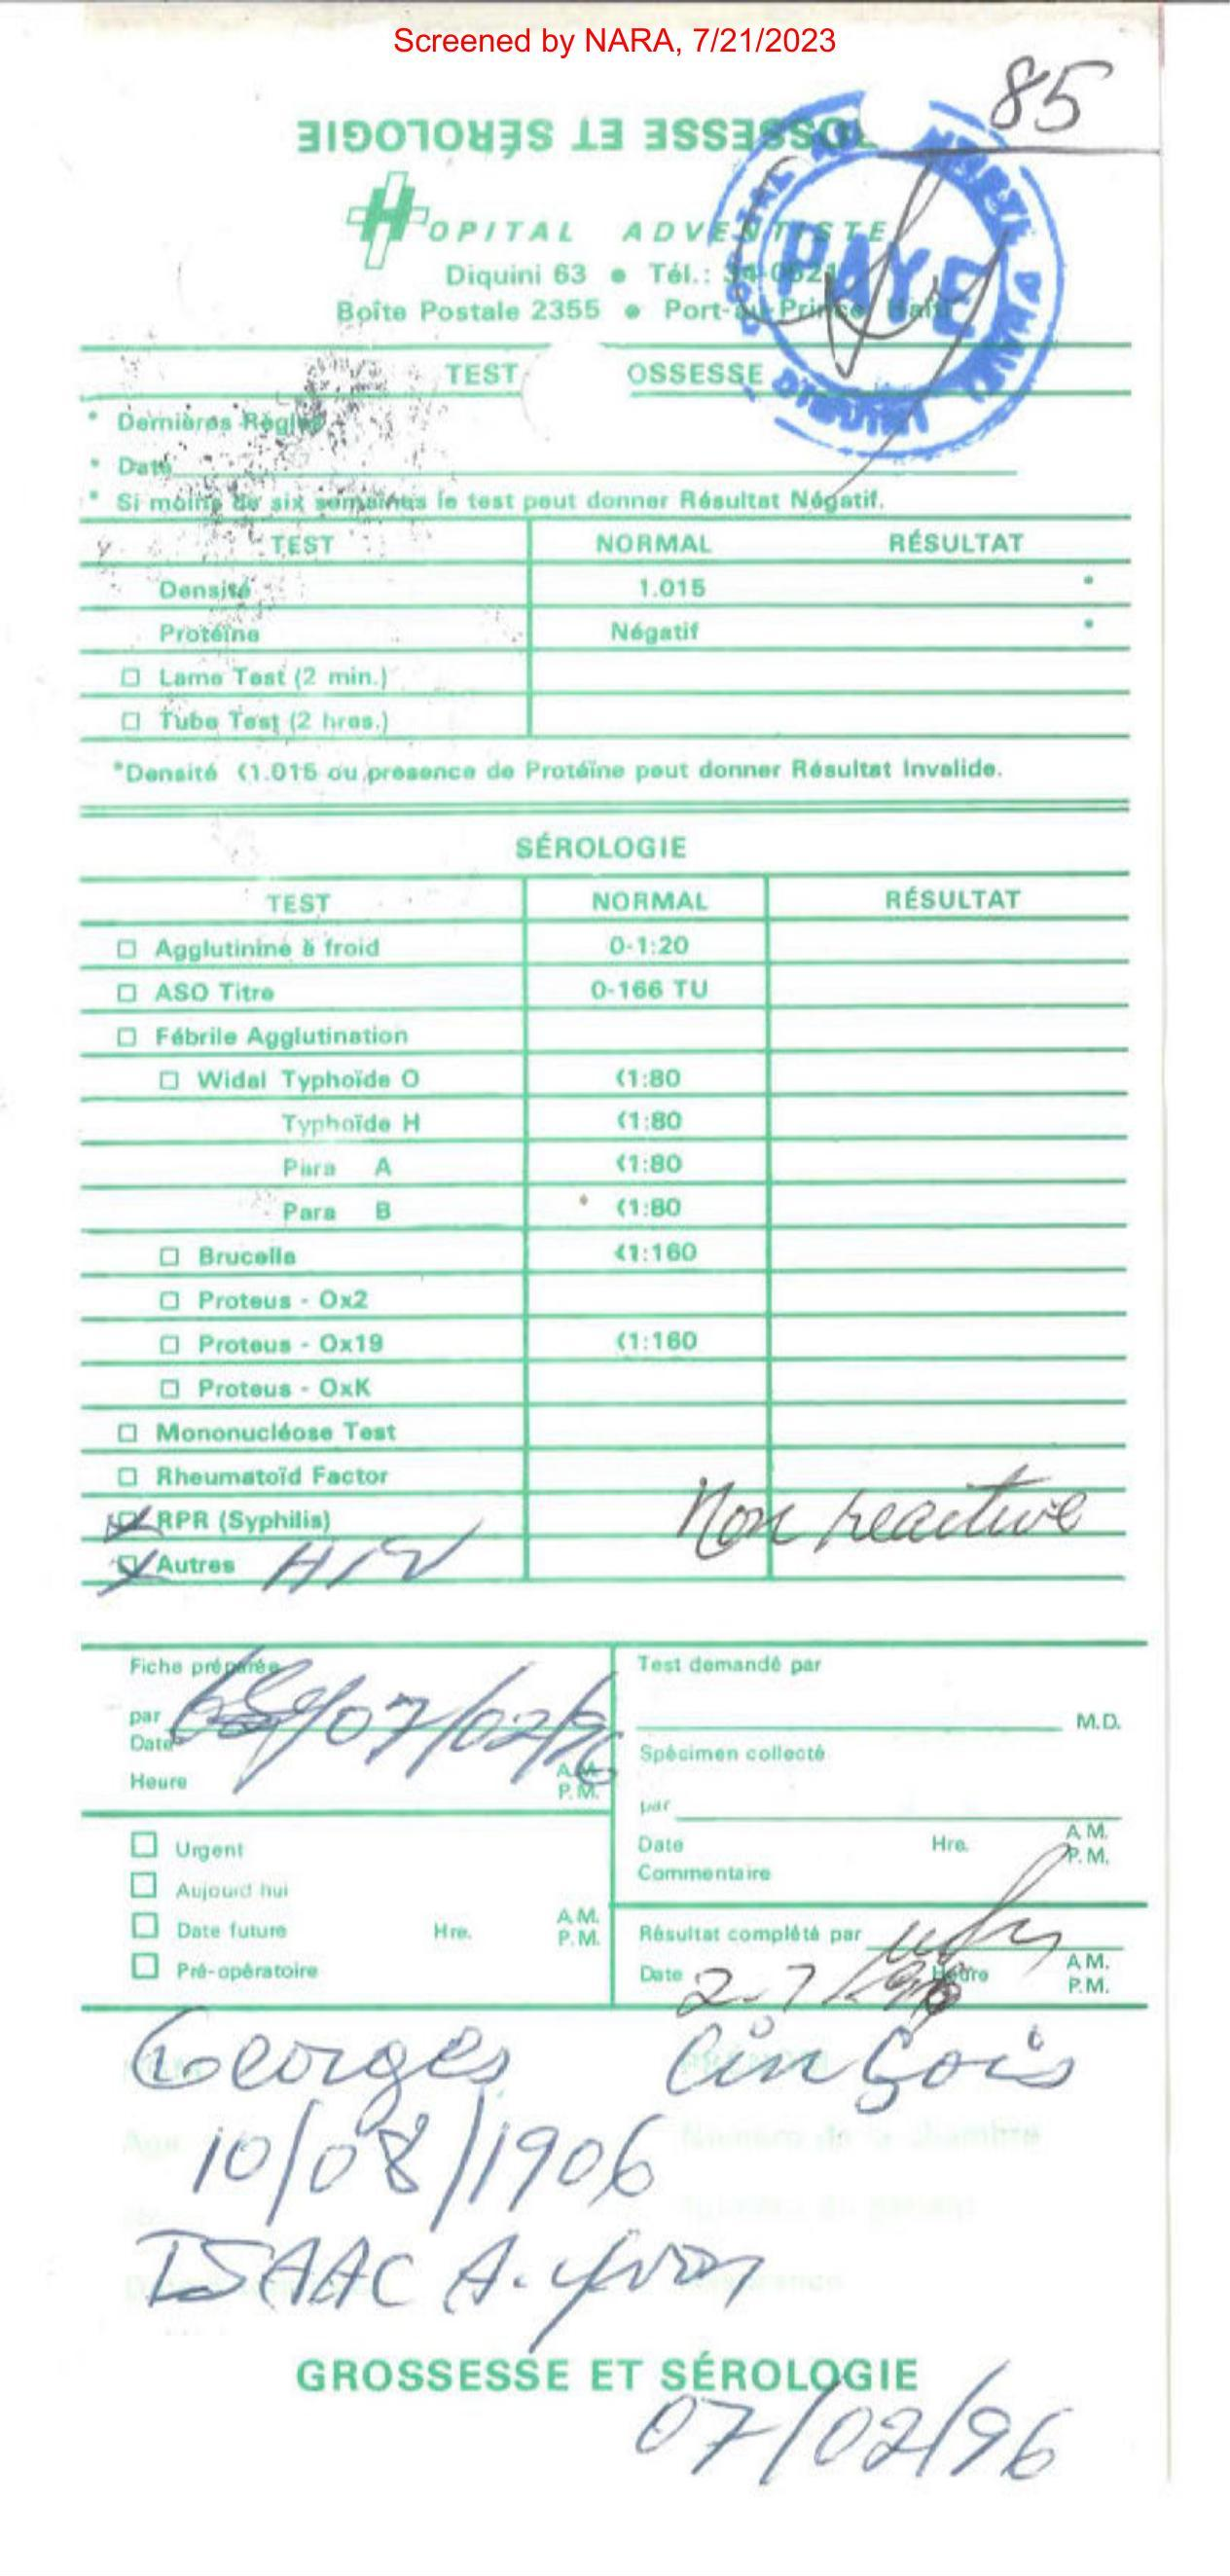 Screened by NARA, 7/21/2023
85
OSSESSE ET SÉROLOGIE
HOPITAL ADVENTISTE
Diquini 63 • Tél.: 34-0521
Boîte Postale 2355 • Port-au-Prince, Haïti
PAYE
TEST OSSESSE
* Dernières Règles
* Date
* Si moins de six semaines le test peut donner Résultat Négatif.
TEST NORMAL RÉSULTAT
Densité 1.015 *
Protéine Négatif *
□ Lame Test (2 min.)
□ Tube Test (2 hres.)
*Densité <1.015 ou presence de Protéïne peut donner Résultat Invalide.
SÉROLOGIE
TEST NORMAL RÉSULTAT
□ Agglutinine à froid 0-1:20
□ ASO Titre 0-166 TU
□ Fébrile Agglutination
□ Widal Typhoïde O <1:80
Typhoïde H <1:80
Para A <1:80
Para B <1:80
□ Brucella <1:160
□ Proteus - Ox2
□ Proteus - Ox19 <1:160
□ Proteus - OxK
□ Mononucléose Test
□ Rheumatoïd Factor
RPR (Syphilis) Non reactive
Autres HIV
Fiche préparée
par
Date 07/02/96
Heure A.M.
P.M.
Test demandé par
M.D.
Spécimen collecté
par
Date Hre. A.M.
P.M.
Commentaire
□ Urgent
□ Aujourd hui
□ Date future Hre. A.M.
P.M.
□ Pré-opératoire
Résultat complété par
Date 2-7/96 Heure A.M.
P.M.
Georges
10/08/1906
Age
Numéro de la chambre
ISAAC A. Yvon
GROSSESSE ET SÉROLOGIE
07/02/96